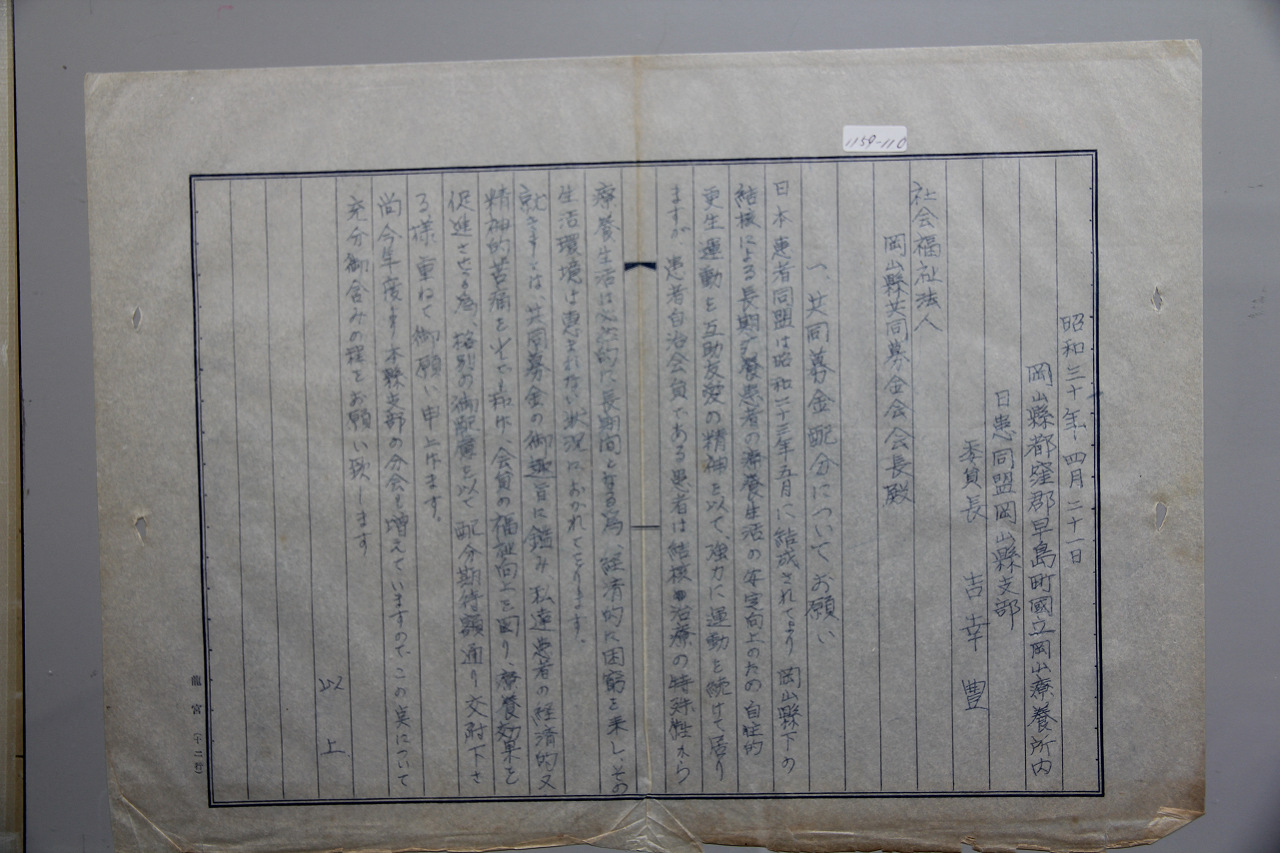 1159-110
昭和三十年四月二十一日
岡山縣都窪郡早島町國立岡山療養所内
日患同盟岡山縣支部
委員長 吉幸豊
社会福祉法人
岡山縣共同募金会会長殿
一、共同募金配分についてお願い
日本患者同盟は昭和二十三年五月に結成されてより岡山縣下の
結核による長期療養患者の療養生活の安定向上のため自主的
更生運動を互助友愛の精神を以て、強力に運動を続けて居り
ますが患者自治会員である患者は結核治療の特殊性から
療養生活は必然的に長期間となる為、経済的に困窮を来し、その
生活環境は恵まれない状況におかれております。
就きましては、共同募金の御趣旨に鑑み、私達患者の経済的又
精神的苦痛を少しでも和げ、会員の福祉向上を図り、療養効果を
促進させる為、格別の御配慮を以て配分期待額通り交附下さ
る様重ねて御願い申上げます。
尚今年度より本縣支部の分会も増えていますのでこの点について
充分御含みの程をお願い致します
以上
龍宮(十二行)